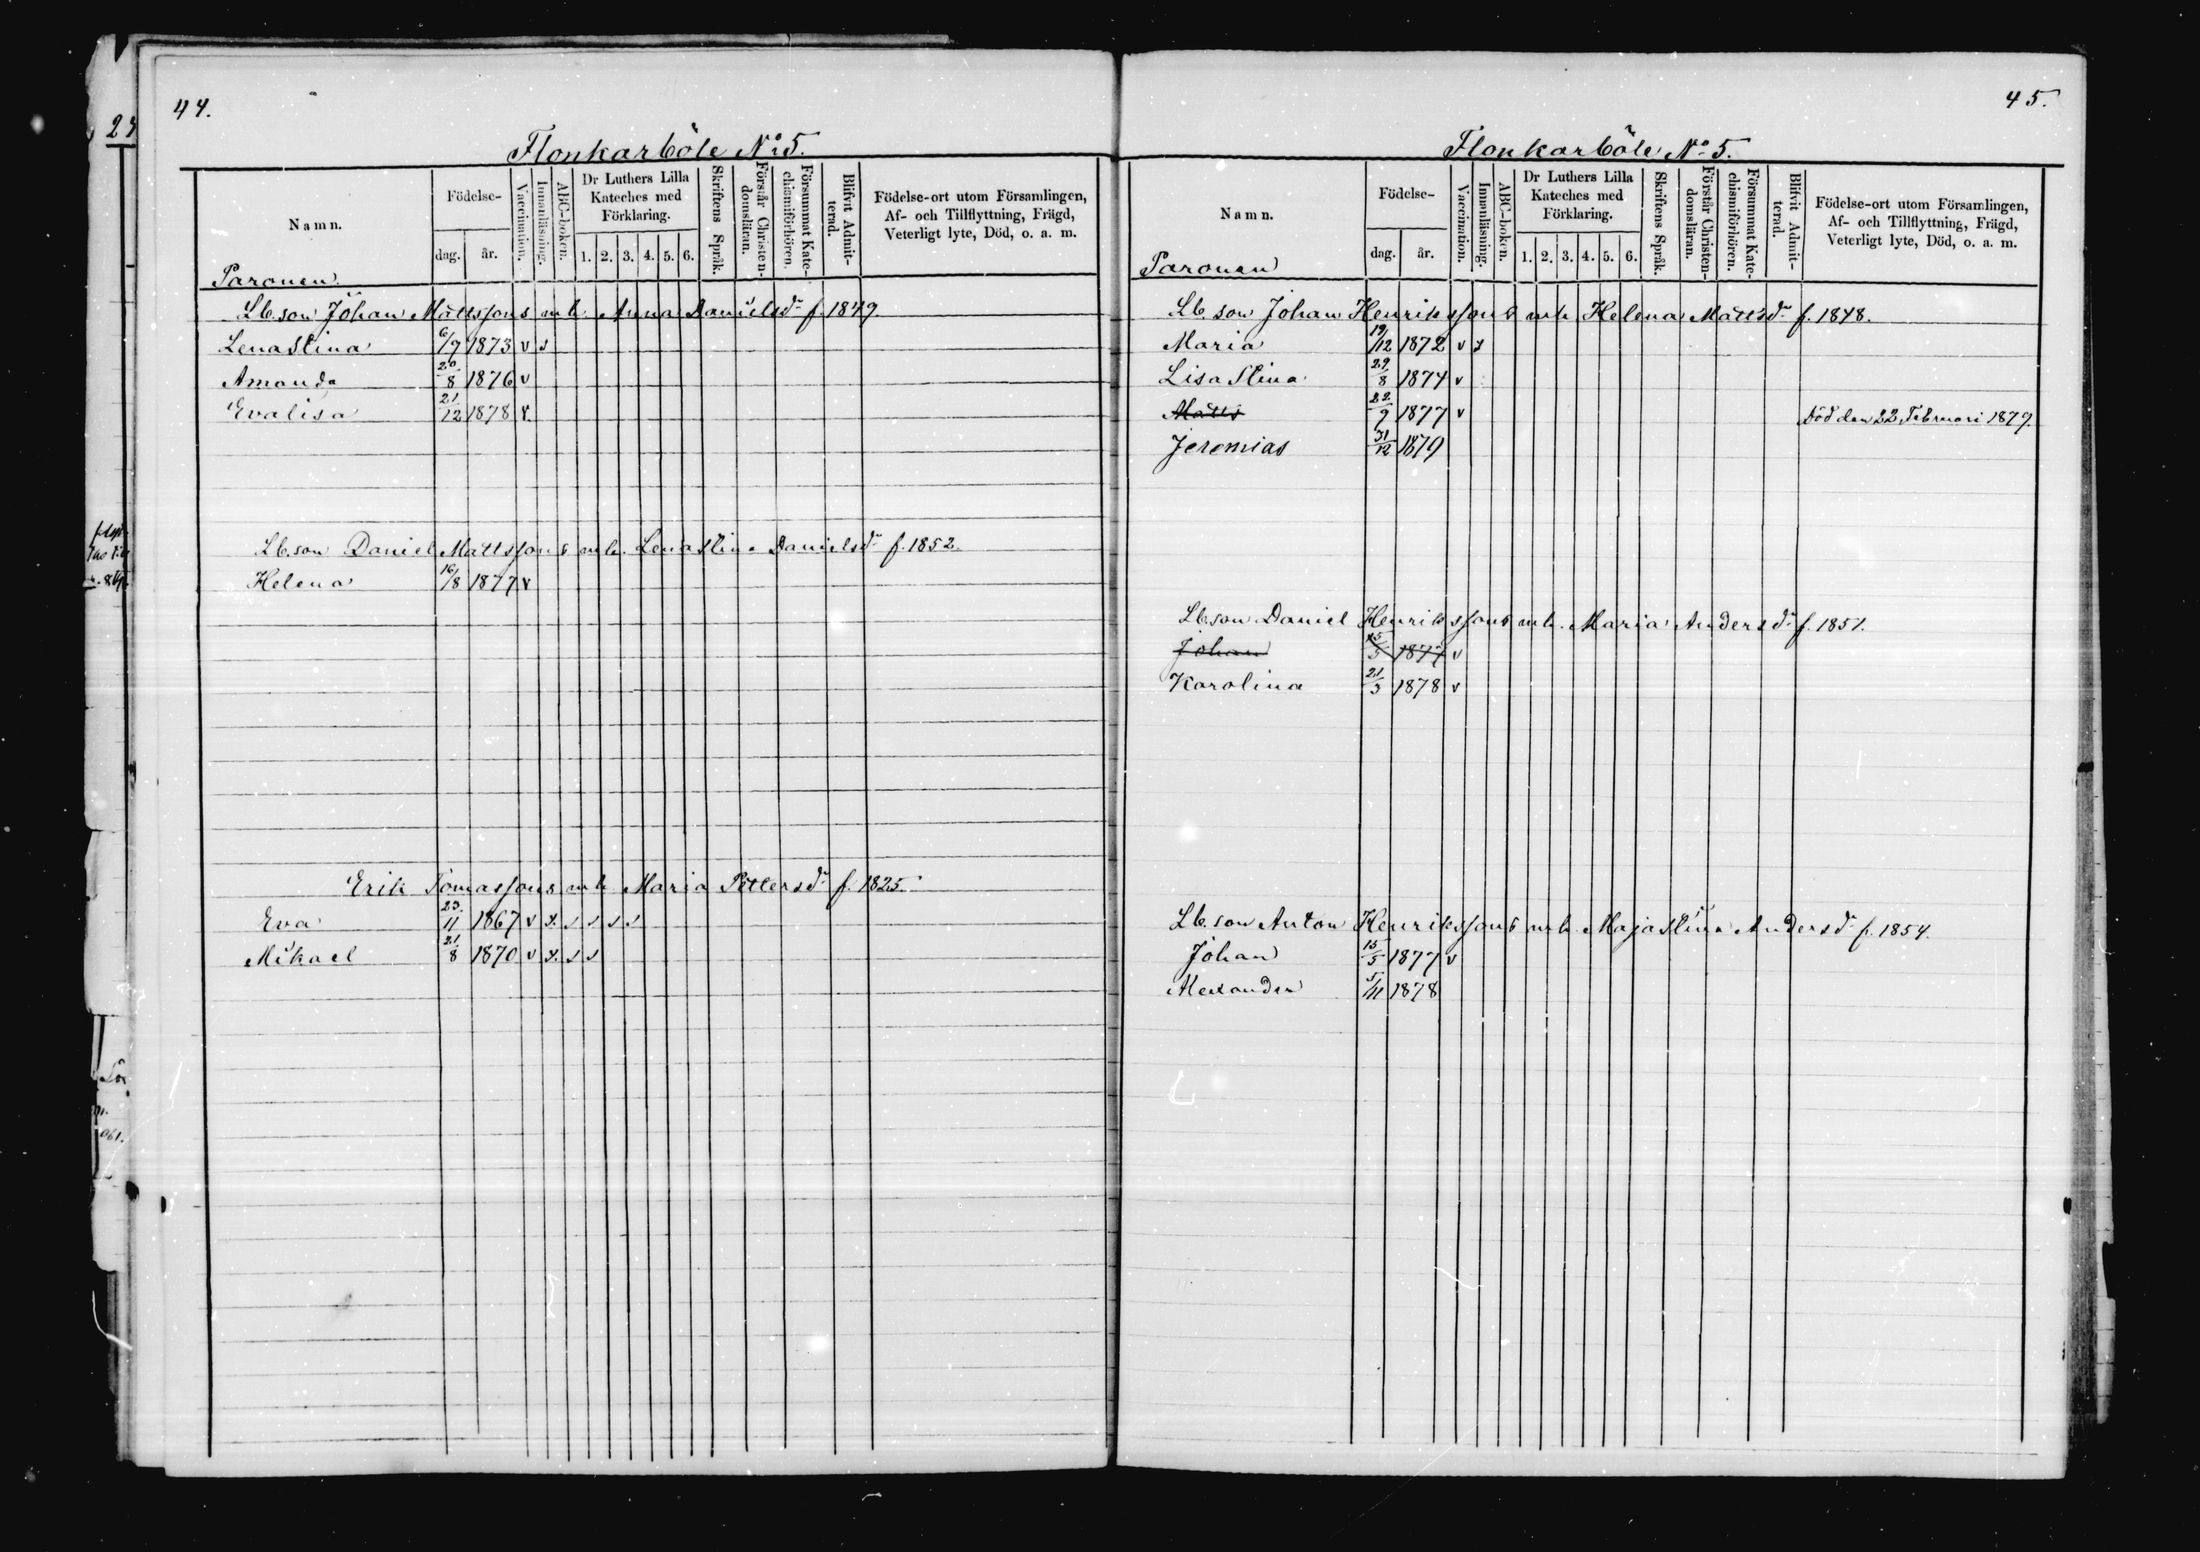 44.
Flonkarböle No 5.
Namn.
Födelse-
dag.
år.
Vaccination.
Innanläsning.
ABC-boken.
Dr Luthers Lilla
Kateches med
Förklaring.
1. 2. 3. 4. 5. 6.
Skriftens Språk.
Förstår Christen-
domsläran.
Försummat Kate-
chismiförhören.
Blifvit Admit-
terad.
Födelse-ort utom Församlingen,
Af- och Tillflyttning, Frägd,
Veterligt lyte, Död, o. a. m.
Paronen
Lb. son Johan Mattssons mh. Anna Danielsdr f. 1849
Lenastina 6/9 1873 v s
Amanda 20/8 1876 v
Evalisa 21/12 1878 v.
Lb. son Daniel Mattssons mh. Lenastina Danielsdr f. 1852.
Helena 16/8 1877 v
Erik Tomassons mh Maria Pettersdr f. 1825.
Eva 23/11 1867 v x. s s s s
Mikael 21/8 1870 v x. s s
45.
Flonkarböle No 5.
Namn.
Födelse-
dag.
år.
Vaccination.
Innanläsning.
ABC-boken.
Dr Luthers Lilla
Kateches med
Förklaring.
1. 2. 3. 4. 5. 6.
Skriftens Språk.
Förstår Christen-
domsläran.
Försummat Kate-
chismiförhören.
Blifvit Admit-
terad.
Födelse-ort utom Församlingen,
Af- och Tillflyttning, Frägd,
Veterligt lyte, Död, o. a. m.
Paronen
Lb. son Johan Henrikssons mh Helena Mattsdr f. 1848.
Maria 19/12 1872 v x
Lisa Stina 29/8 1874 v
Matts 22/9 1877 v Död den 22 Februari 1879.
Jeremias 31/12 1879
Lb. son Daniel Henrikssons mh. Maria Andersdr f. 1851.
Johan 15/5 1877 v
Karolina 21/3 1878 v
Lb. son Anton Henrikssons mh. Majastina Andersdr f. 1854.
Johan 15/5 1877 v
Alexander 5/11 1878